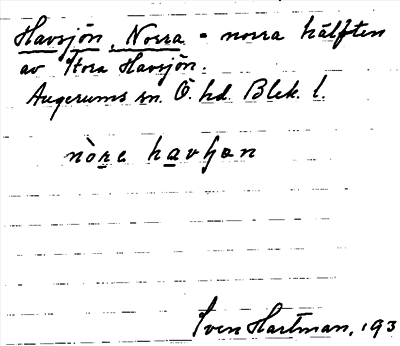 Havsjön, Norra = norra hälften
av Stora Havsjön.
Augerums sn. Ö. hd. Blek. l.
nòre havʃən
Sven Hartman, 193